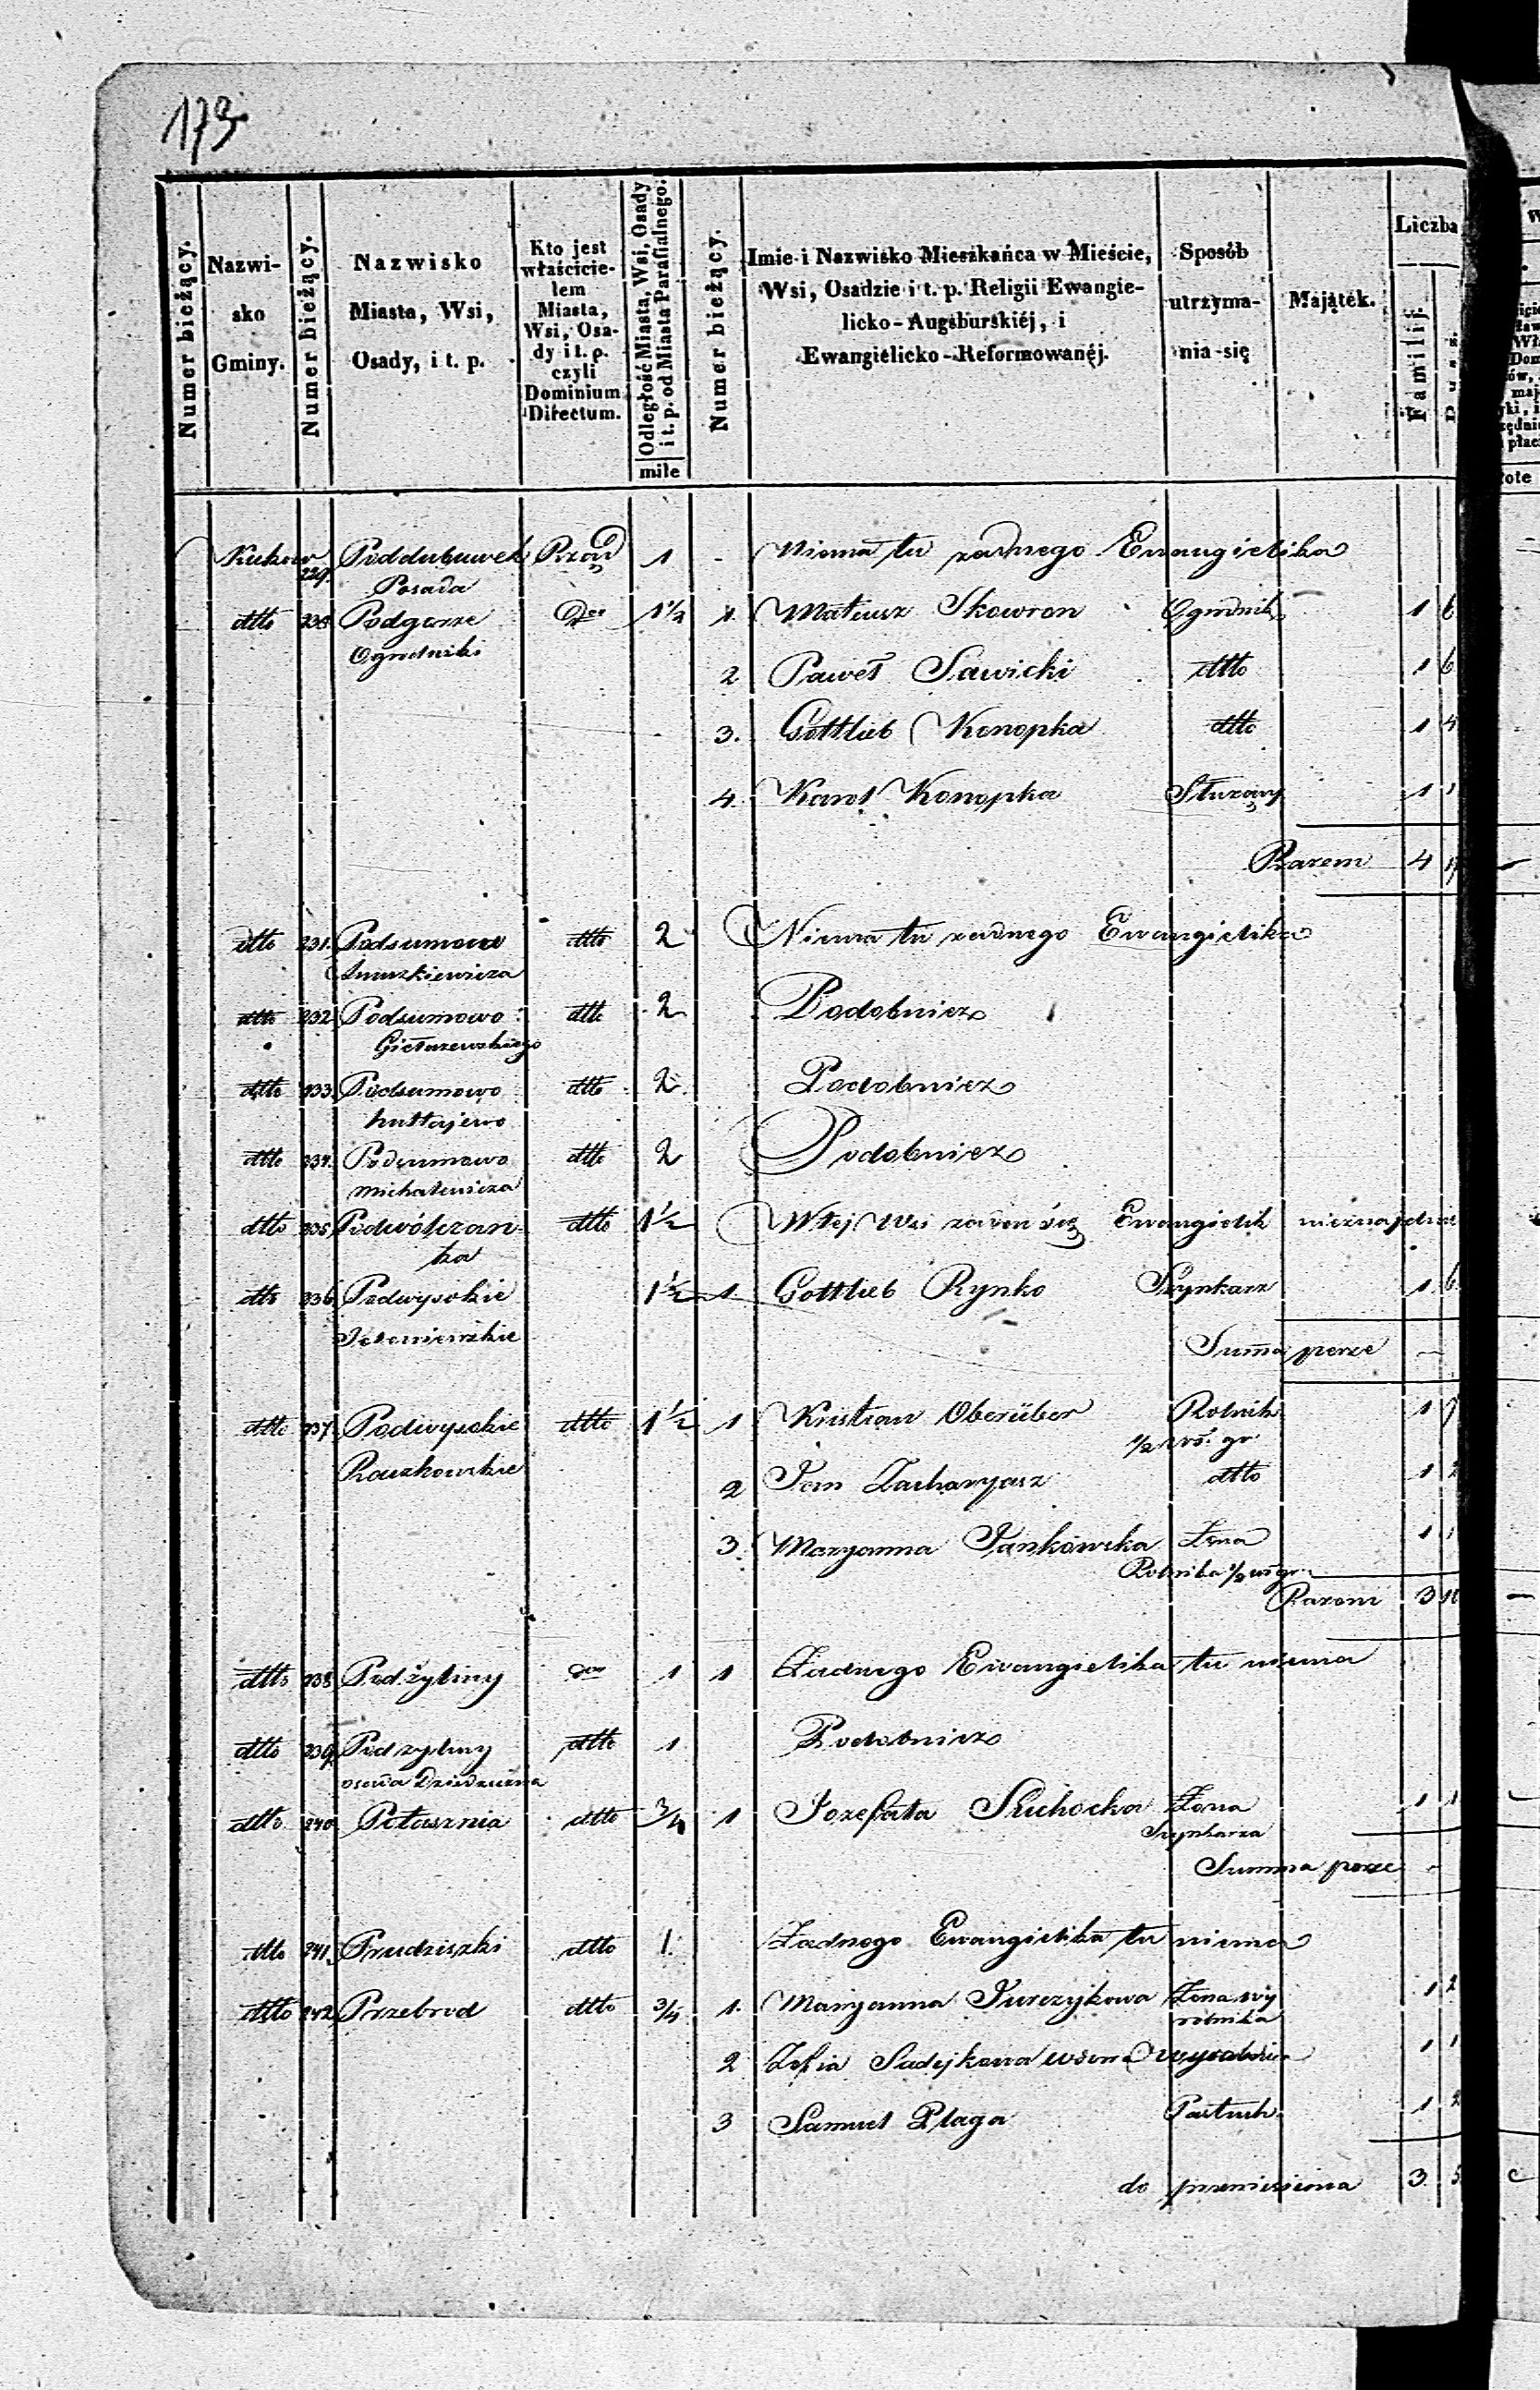 173
Numer bieżący.
Nazwi-
sko
Gminy.
Numer bieżący.
Nazwisko
Miasta, Wsi,
Osady, i t. p.
Kto jest
właścicie-
lem
Miasta,
Wsi, Osa-
dy i t. p.
czyli
Dominium
Directum.
Odległość Miasta, Wsi, Osady
i t. p. od Miasta Parafialnego.
mile
Numer bieżący.
Imie i Nazwisko Mieszkańca w Mieście,
Wsi, Osadzie i t. p. Religii Ewangie-
licko-Augsburskiéj, i
Ewangielicko-Reformowanéj.
Sposób
utrzyma-
nia się
Majątek.
Liczba
Familij.
Dusz.
Kukow 229. Poddubuwek Rząd 1 - Niema tu żadnego Ewangielika
Posada
dtto 230 Podgorze Dto 1½ 1. Mateusz Skowron Ogrodnik 1 6
Ogrodniki
2 Paweł Sawicki dtto 1 6
3. Gottlieb Konopka dtto 1 4
4. Karol Konopka Służący 1 1
Razem 4 17
dtto 231. Podsumowo dtto 2 Niema tu żadnego Ewangielika
dtto 232 Podsumowo dtto 2 Podobnież
dtto 233. Podsumowo dtto 2 Podobnież
hułłajewo
dtto 234. Podsumowo dtto 2 Podobnież
Michalewicza
dtto 235 Podwólczan- dtto 1½ W tej Wsi żaden się Ewangielik nieznajduje
ka
dtto 236 Podwysokie 1½ 1. Gottlieb Rynko Szynkarz 1 6
Jeleniewskie
Summa perse -
dtto 237. Podwysokie dtto 1½ 1 Kristian Oberüber Rolnik 1 7
½ wł. gr.
Raczkowskie
2 Jan Zacharyasz dtto 1 2
3. Maryanna Jankowska Żona 1 1
Rolnika ½ wł gr.
Razem 3 10
dtto 238 Podżyliny dto 1 1 Żadnego Ewangielika tu niema
dtto 239 Podżyliny dtto 1 Podobnież
osada
dtto 240 Ptasznia dtto ¾ 1 Jozefata Suchocka Żona 1 1
Szynkarza
Summa perse -
dtto 241. Prudziszki dtto 1. Żadnego Ewangielika tu niema
dtto 242 Przebrod dtto ¾ 1. Maryanna Jurczykowa Żona wy 1 2
robnika
2 Zofia Sadejkowa wdowa 1 1
3 Samuel Plaga Pastuch 1 2
do przeniesienia 3 5